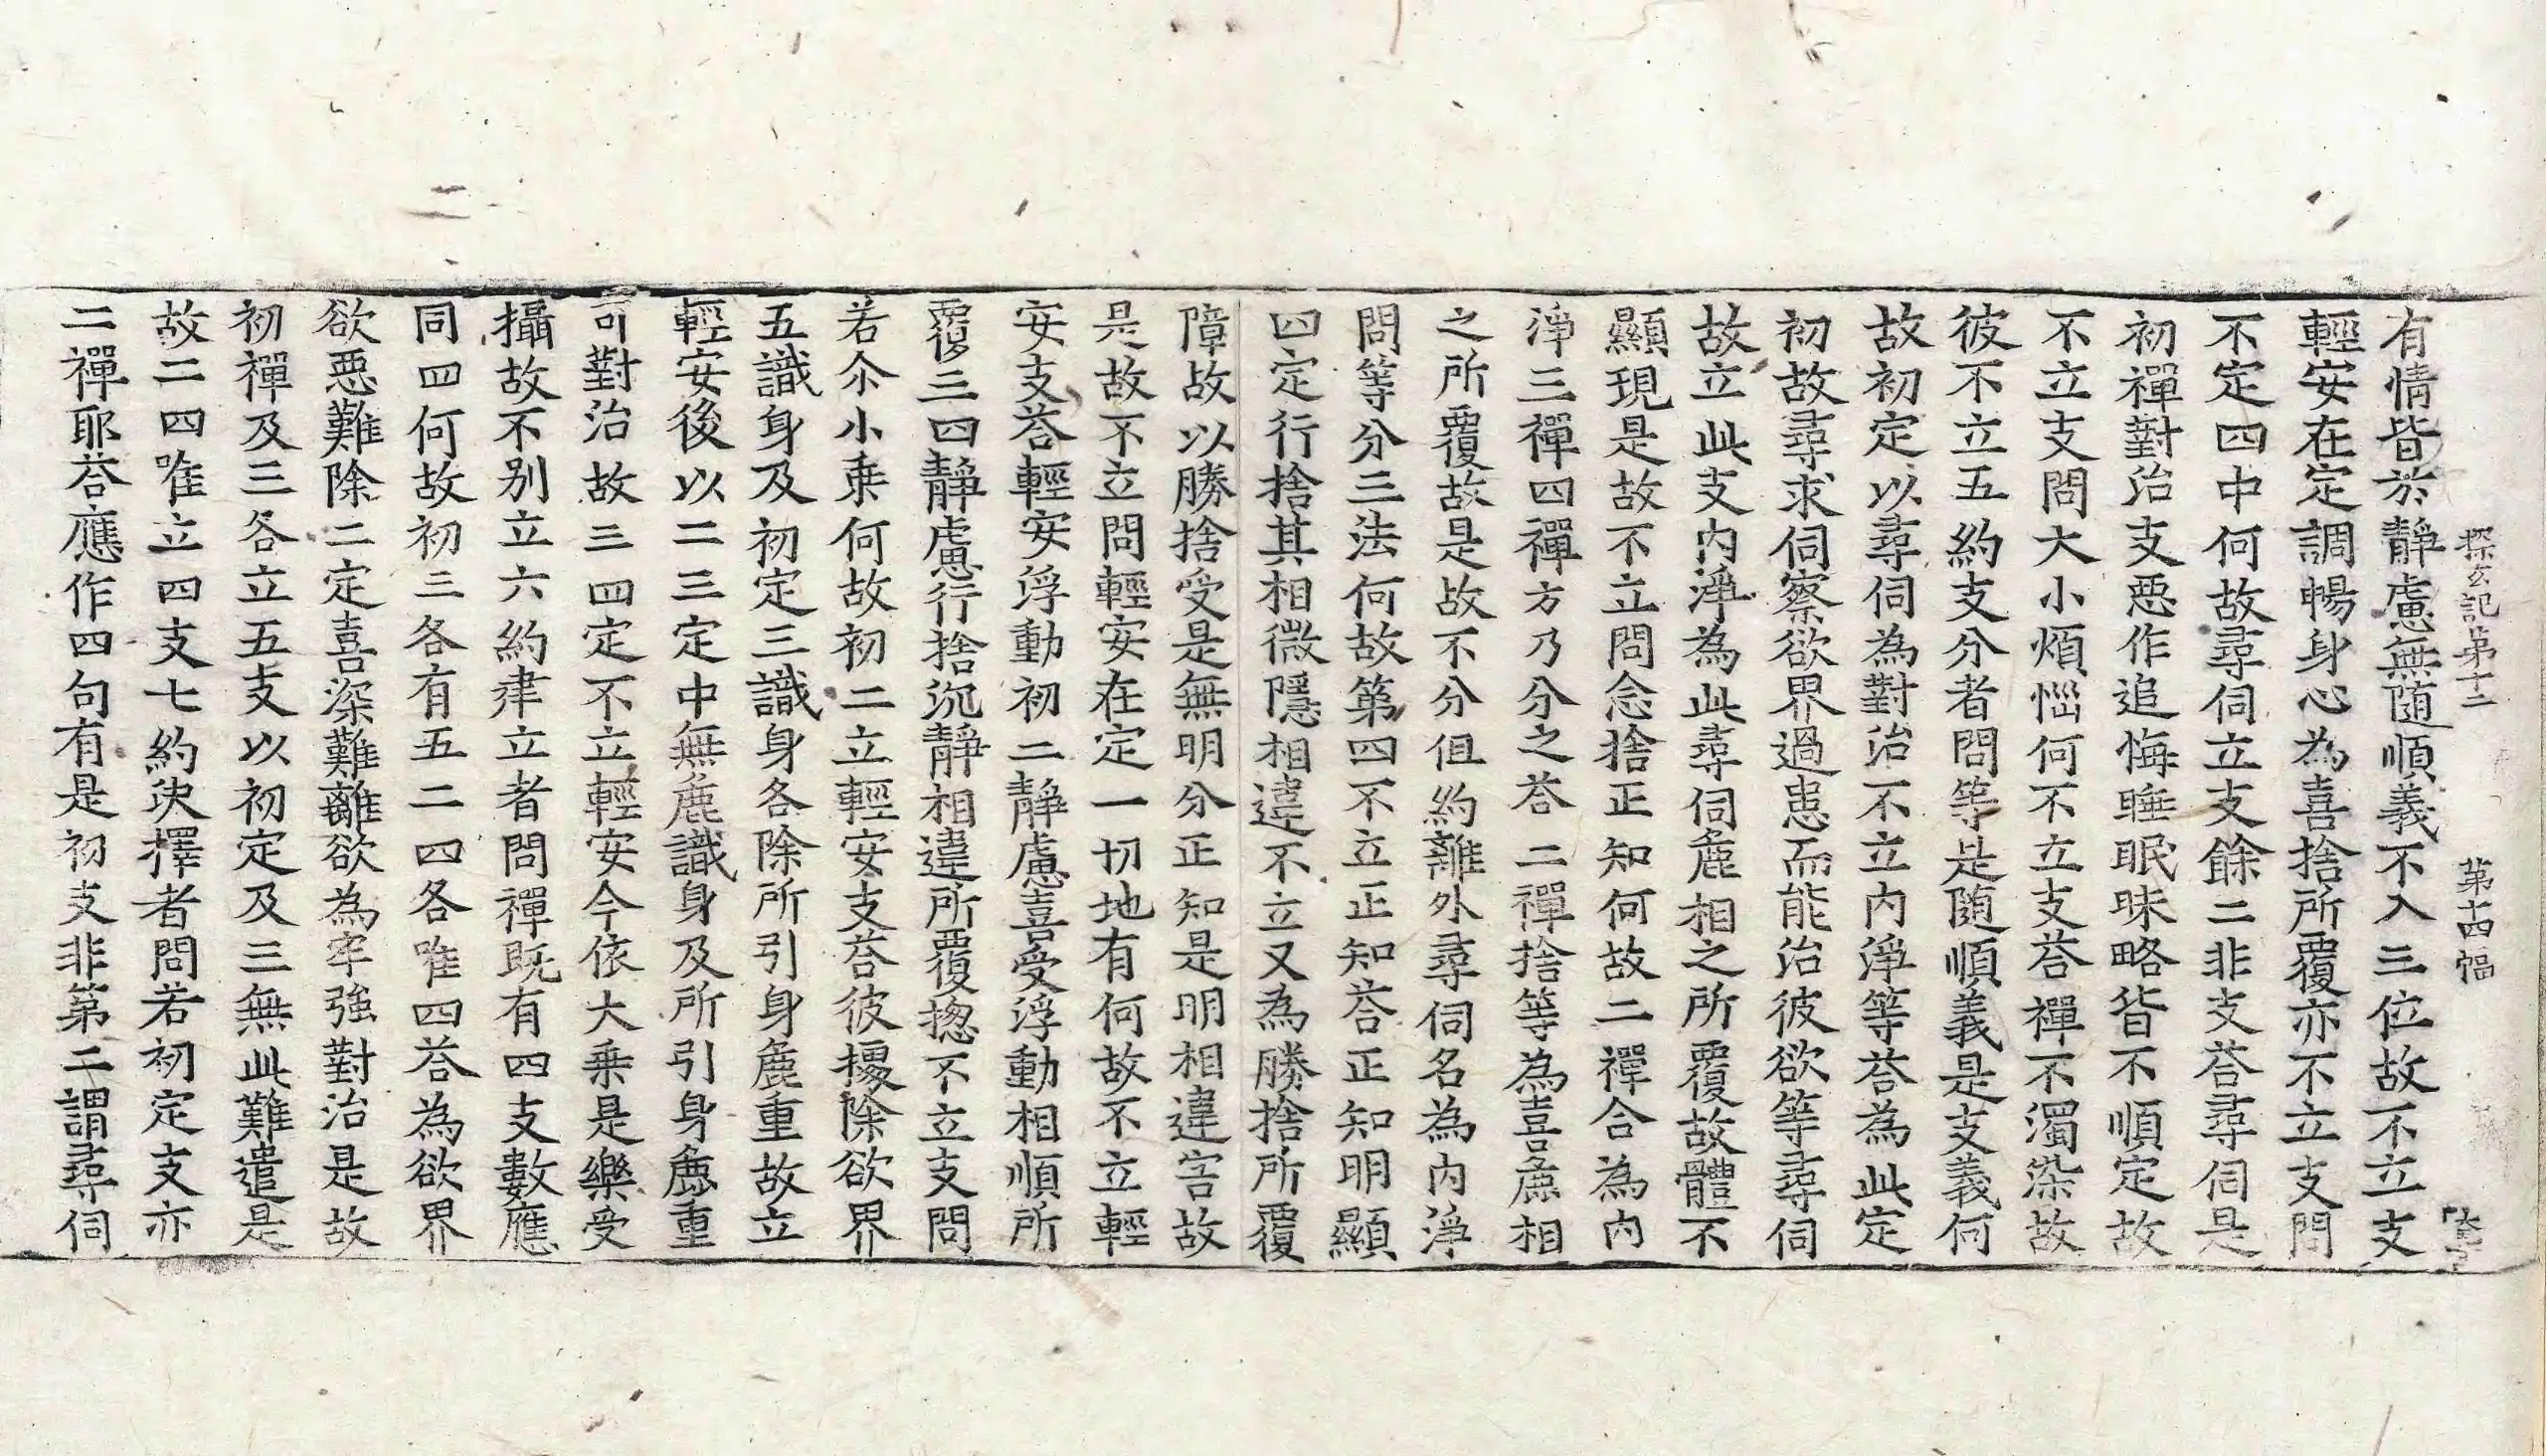 探玄記第十二　第十四幅
有情皆於靜慮無随順義不入三位故不立支
輕安在定調暢身心為喜捨所覆亦不立支問
不定四中何故尋伺立支餘二非支荅尋伺是
初禪對治支悪作追悔睡眠昧略皆不順定故
不立支問大小煩惱何不立支荅禪不濁染故
彼不立五約支分者問等是随順義是支義何
故初定以尋伺為對治不立內淨等荅為此定
初故尋求伺察欲界過患而能治彼欲等尋伺
故立此支內淨為此尋伺麁相之所覆故體不
顯現是故不立問念捨正知何故二禪合為內
淨三禪四禪方乃分之荅二禪捨等為喜麁相
之所覆故是故不分伹約離外尋伺名為內淨
問等分三法何故第四不立正知荅正知明顯
四定行捨其相微隱相違不立又為勝捨所覆
障故以勝捨受是無明分正知是明相違害故
是故不立問輕安在定一切地有何故不立輕
安支荅輕安浮動初二靜慮喜受浮動相順所
覆三四靜慮行捨沉靜相違所覆揔不立支問
若尒小乗何故初二立輕安支荅彼擾除欲界
五識身及初定三識身各除所引身麁重故立
輕安後以二三定中無麁識身及所引身麁重
可對治故三四定不立輕安今依大乗是樂受
攝故不別立六約建立者問禪既有四支數應
同四何故初三各有五二四各唯四荅為欲界
欲悪難除二定喜深難離欲為牢強對治是故
初禪及三各立五支以初定及三無此難遣是
故二四唯立四支七約決擇者問若初定支亦
二禪耶荅應作四句有是初支非第二謂尋伺